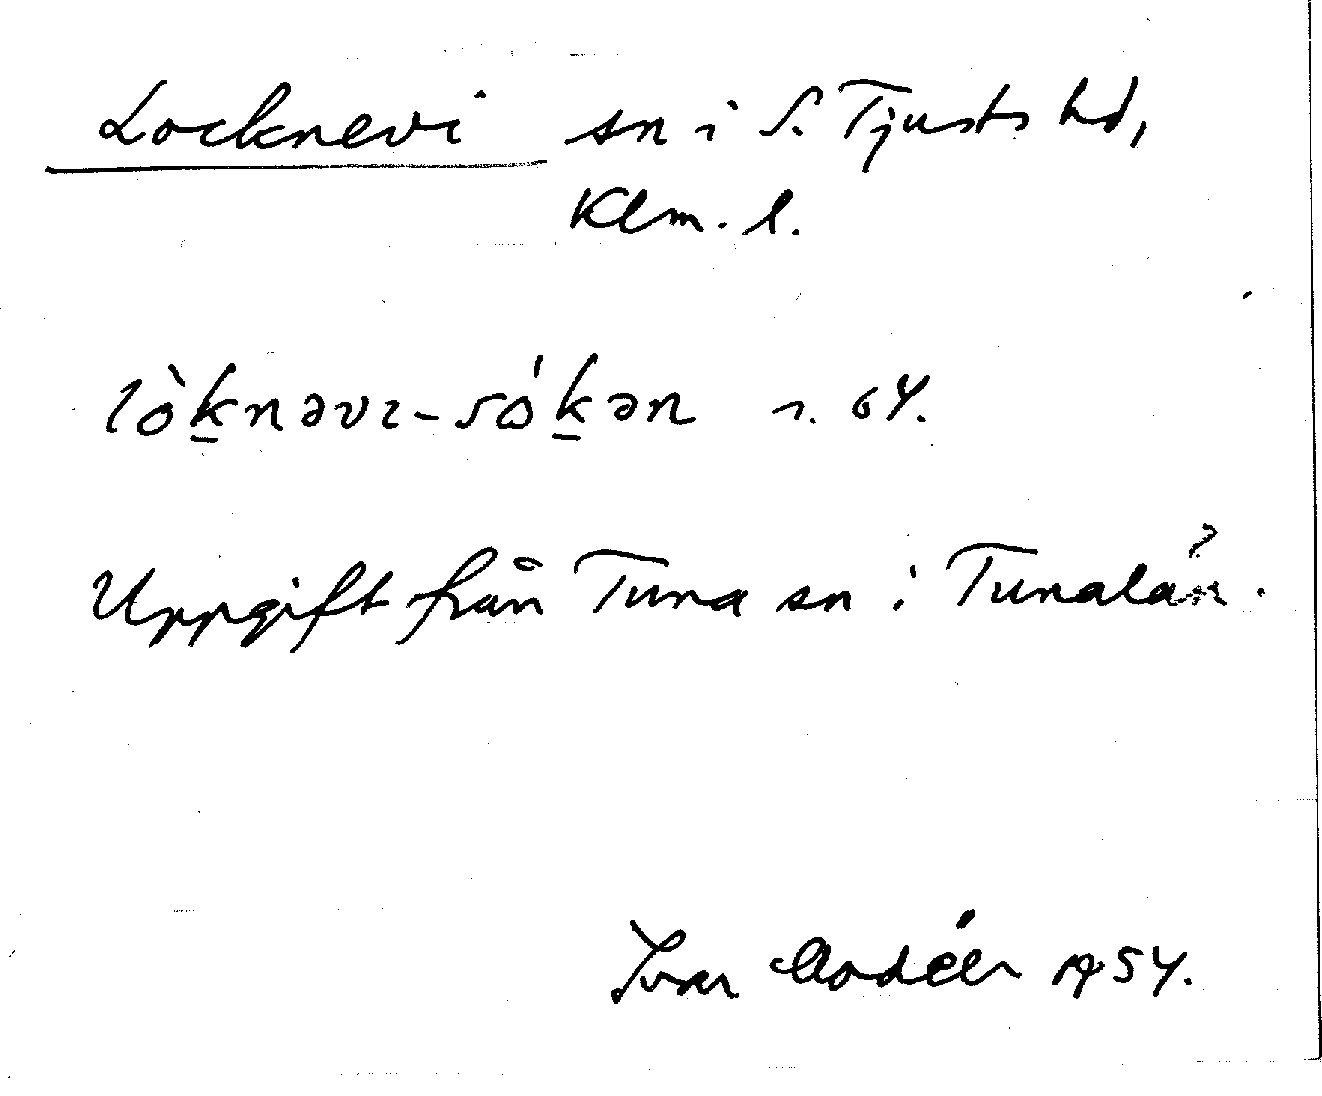 Locknevi sn i S. Tjusts hd,
Klm. l.
lòk̲nəvɩ-sók̲ən s. 64.
Uppgift från Tuna sn i Tunalän.
Ivar Modéer 1954.